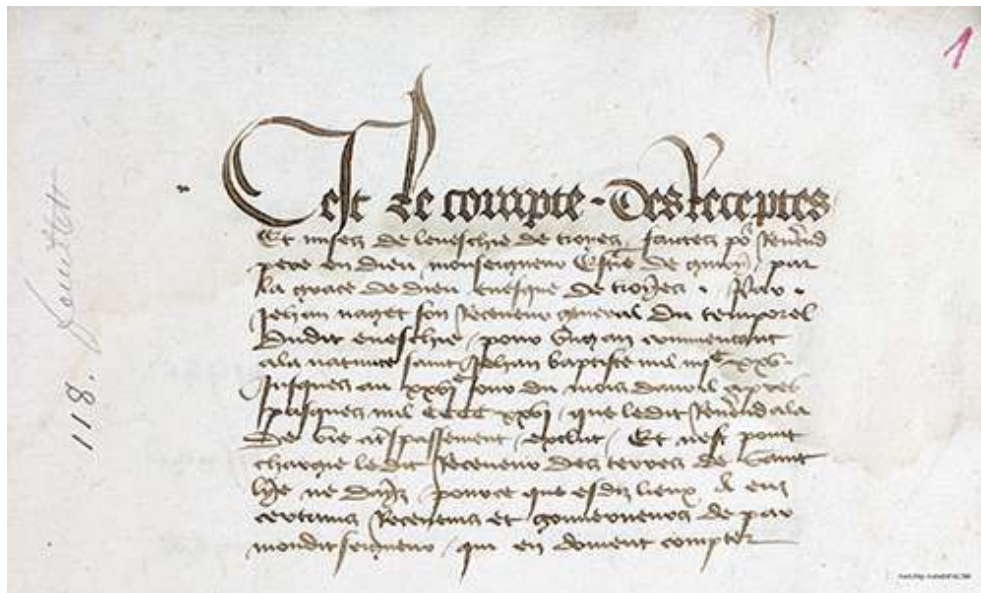 1
C'est le compte des Receptes
Et mises de leveschie de troyes, faictes po Reverend
pere en dieu monseigneur Estienne de givry, par
la grace de dieu evesque de troyes. Par
Jehan naget son Receveur general du temporel
dudit eveschie, pour ung an commencant
ala nativite saint Jehan baptiste mil iiijc xxv
Jusques au xxvje jour du mois davril apres
pasques mil CCCC xxvj, que ledit Reverend ala
de vie a trespassement, exclut, Et nest point
charge ledit Receveur des terres de saint
lye ne daix, pource que esdiz lieux a eu
certains Receveurs et gouverneurs de par
mondit seigneur, qui en doivent compter
118.